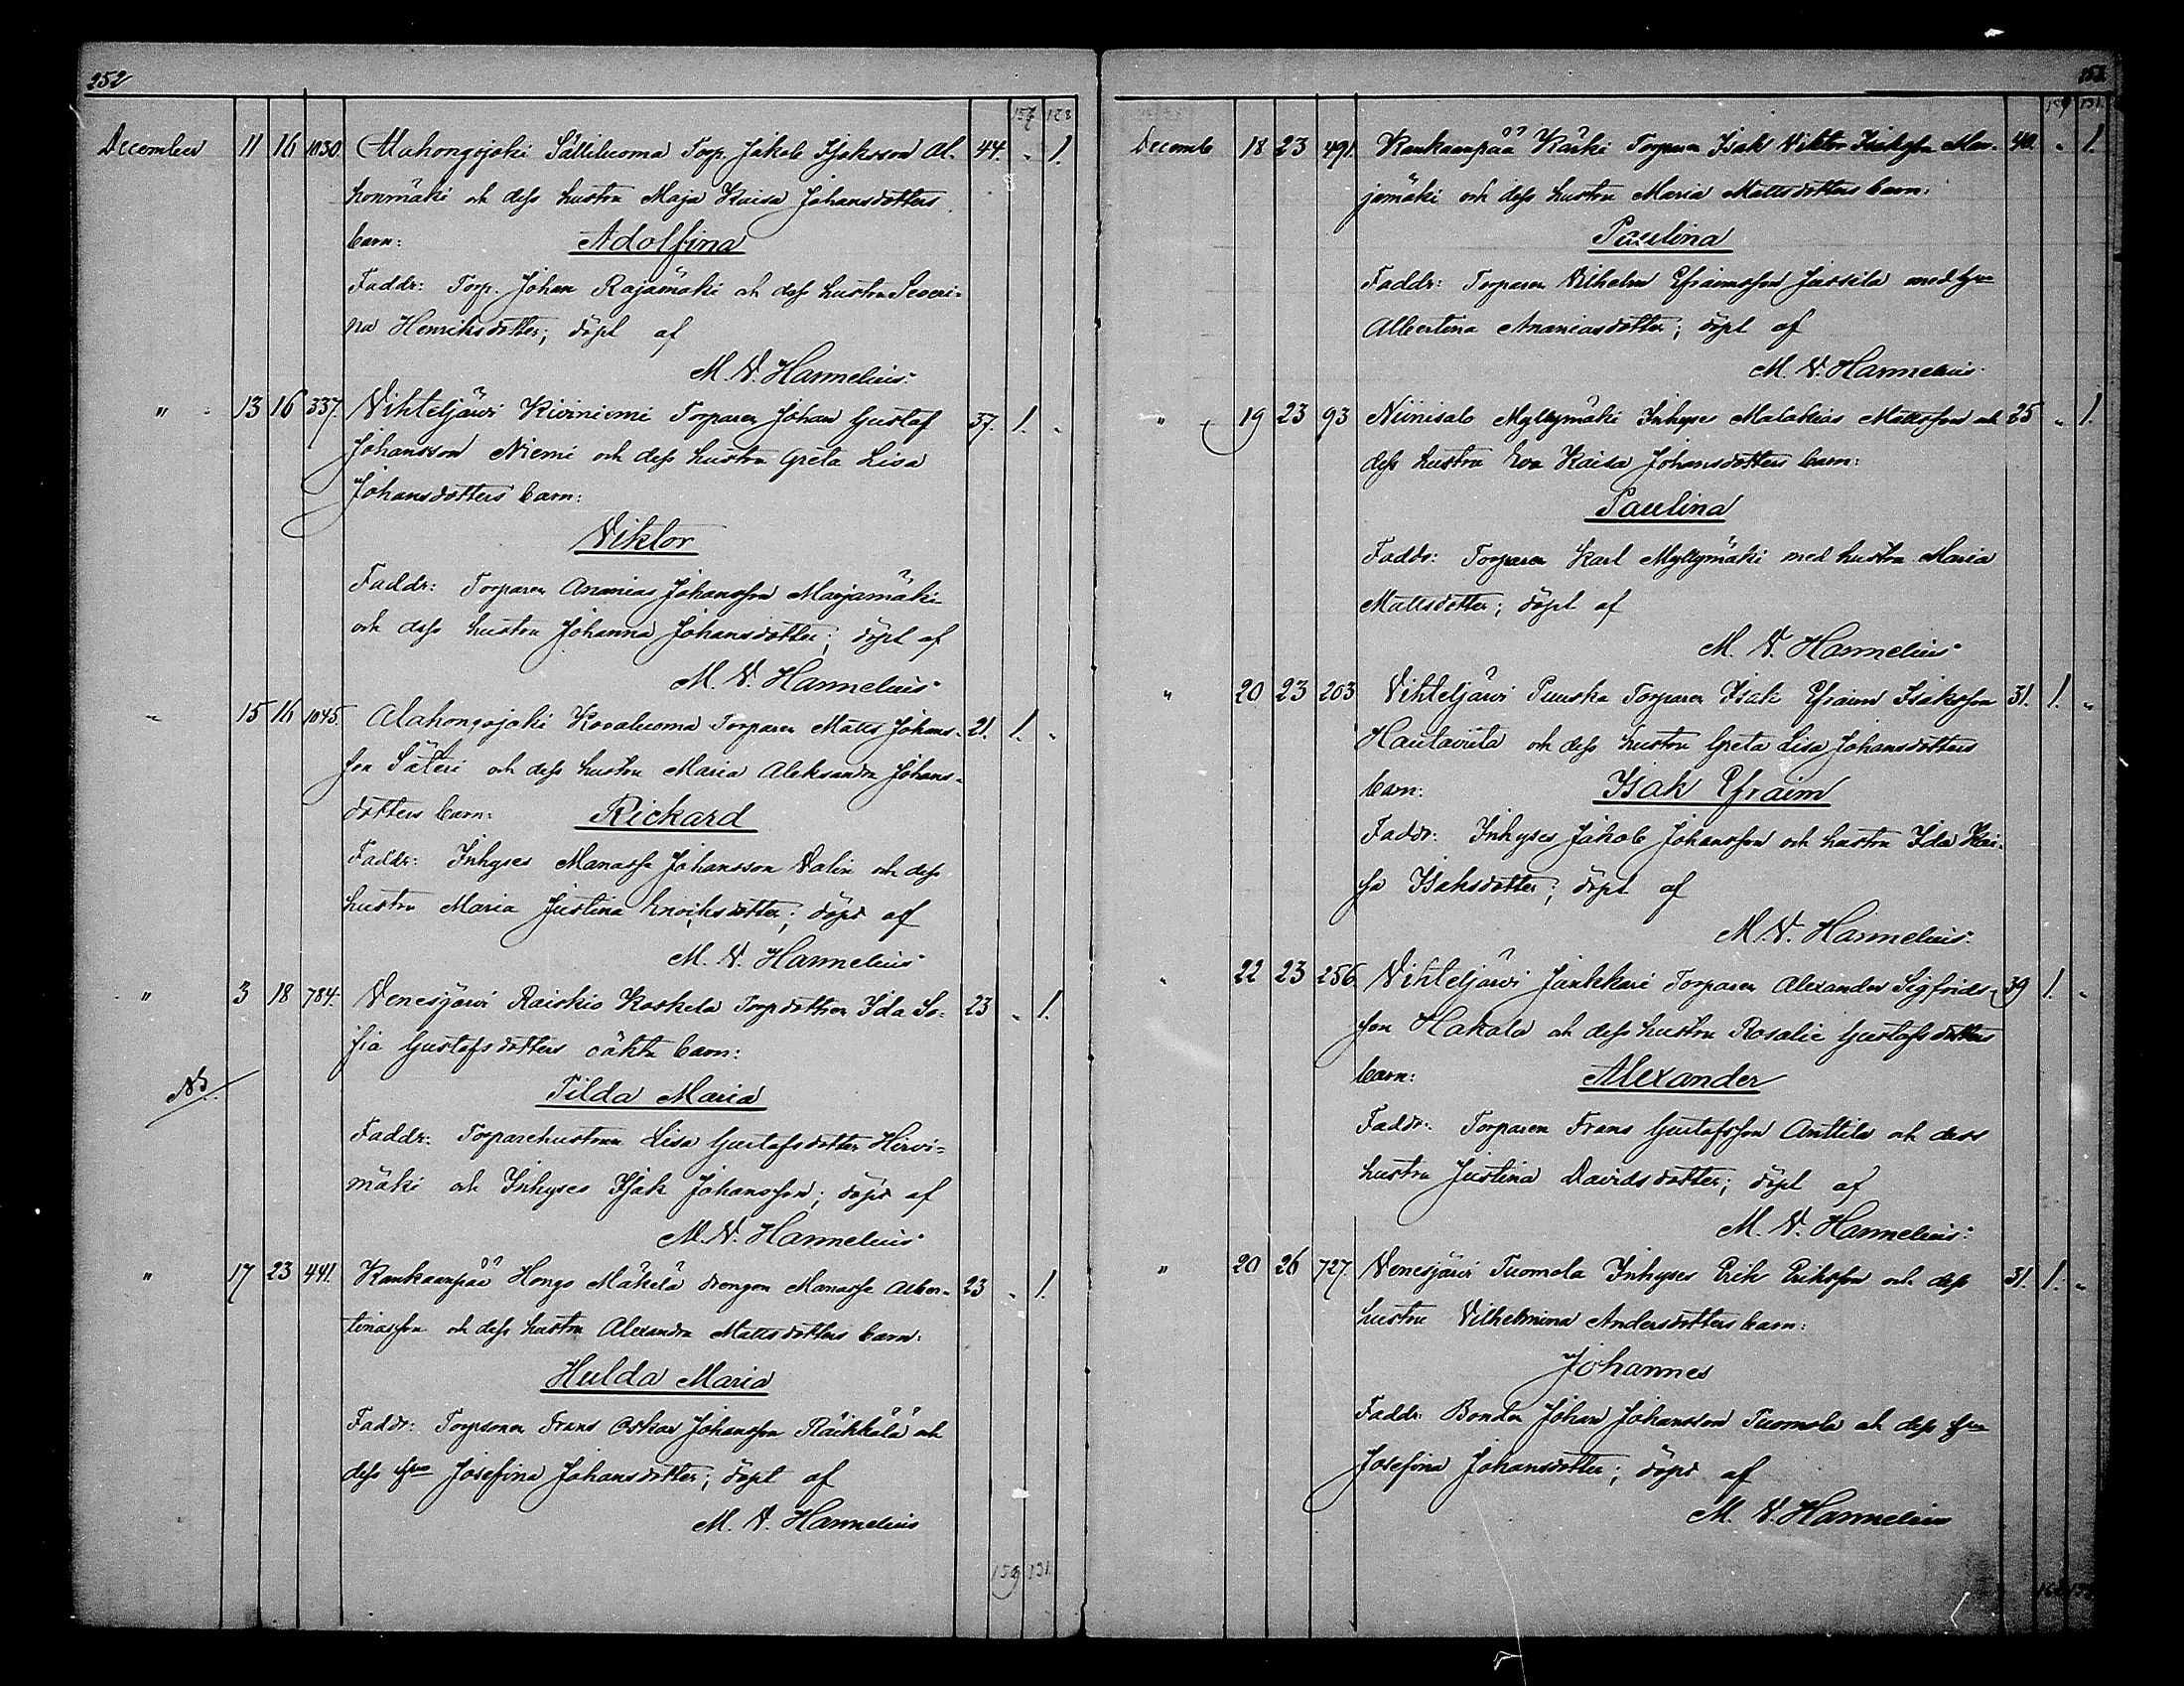 252
157 128
December 11 16 1030. Alahongojoki Sälliluoma Torp. Jakob Isaksson Al- 44. " 1.
konmäki och dess hustru Maja Kaisa Johansdotters
barn: Adolfina
Faddr: Torp. Johan Rajamäki och dess hustru Severi-
na Henriksdotter; döpt af
M. V. Hannelius.
" 13 16 337. Vihteljärvi Kiviniemi Torparen Johan Gustaf 37. 1. "
Johansson Niemi och dess hustru Greta Lisa
Johansdotters barn:
Viktor
Faddr: Torparen Ananias Johansson Marjamäki
och dess hustru Johanna Johansdotter; döpt af
M. V. Hannelius.
" 15 16 1045. Alahongojoki Kovaluoma Torparen Matts Johans- 21. 1. "
son Säteri och dess hustru Maria Aleksandra Johans-
dotters barn: Rickard
Faddr: Inhyses Manasse Johansson Valin och dess
hustru Maria Justina Enriksdotter; döpt af
M. V. Hannelius.
" 3 18 784. Venesjärvi Raiskio Koskela Torpdottren Ida So- 23 " 1.
fia Gustafsdotters oäkta barn:
Nb.
Tilda Maria
Faddr: Torparehustrun Lisa Gustafsdotter Hirvi-
mäki och Inhyses Isak Johansson; döpt af
M. V. Hannelius.
" 17 23 441. Kankaanpää Hongo Mäkelä drengen Manasse Alber- 23 " 1.
tinasson och dess hustru Alexandra Mattsdotters barn:
Hulda Maria
Faddr: Torpsonen Frans Oskar Johansson Räikkälä och
dess hru Josefina Johansdotter; döpt af
M. V. Hannelius
159 131.
253.
159 131.
Decemb 18 23 491. Kankaanpää Kärki Torparen Isak Viktor Isaksson Mar- 40. " 1.
jamäki och dess hustru Maria Mattsdotters barn:
Paulina
Faddr: Torparen Vilhelm Efraimsson Jussila med hru
Albertina Ananiasdotter; döpt af
M. V. Hannelius.
" 19 23 93 Niinisalo Myllymäki Inhyses Malakias Mattsson och 25 " 1.
dess hustru Eva Kaisa Johansdotters barn:
Paulina
Faddr: Torparen Karl Myllymäki med hustru Maria
Mattsdotter; döpt af
M. V. Hannelius.
" 20 23 203 Vihteljärvi Puuska Torparen Isak Efraim Isaksson 31. 1. "
Hautaviita och dess hustru Greta Lisa Johansdotters
barn: Isak Efraim
Faddr: Inhyses Jakob Johansson och hustru Ida Kai-
sa Isaksdotter; döpt af
M. V. Hannelius.
" 22 23 256. Vihteljärvi Junkkari Torparen Alexander Sigfrids- 39 1. "
son Hakala och dess hustru Rosalie Gustafsdotters
barn: Alexander
Faddr: Torparen Frans Gustafsson Anttila och dess
hustru Justina Davidsdotter; döpt af
M. V. Hannelius.
" 20 26 727. Venesjärvi Tuomola Inhyses Erik Eriksson och dess 31. 1. "
hustru Vilhelmina Andersdotters barn:
Johannes
Faddr: Bonden Johan Johansson Tuomola och dess hru
Josefina Johansdotter; döpt af
M. V. Hannelius